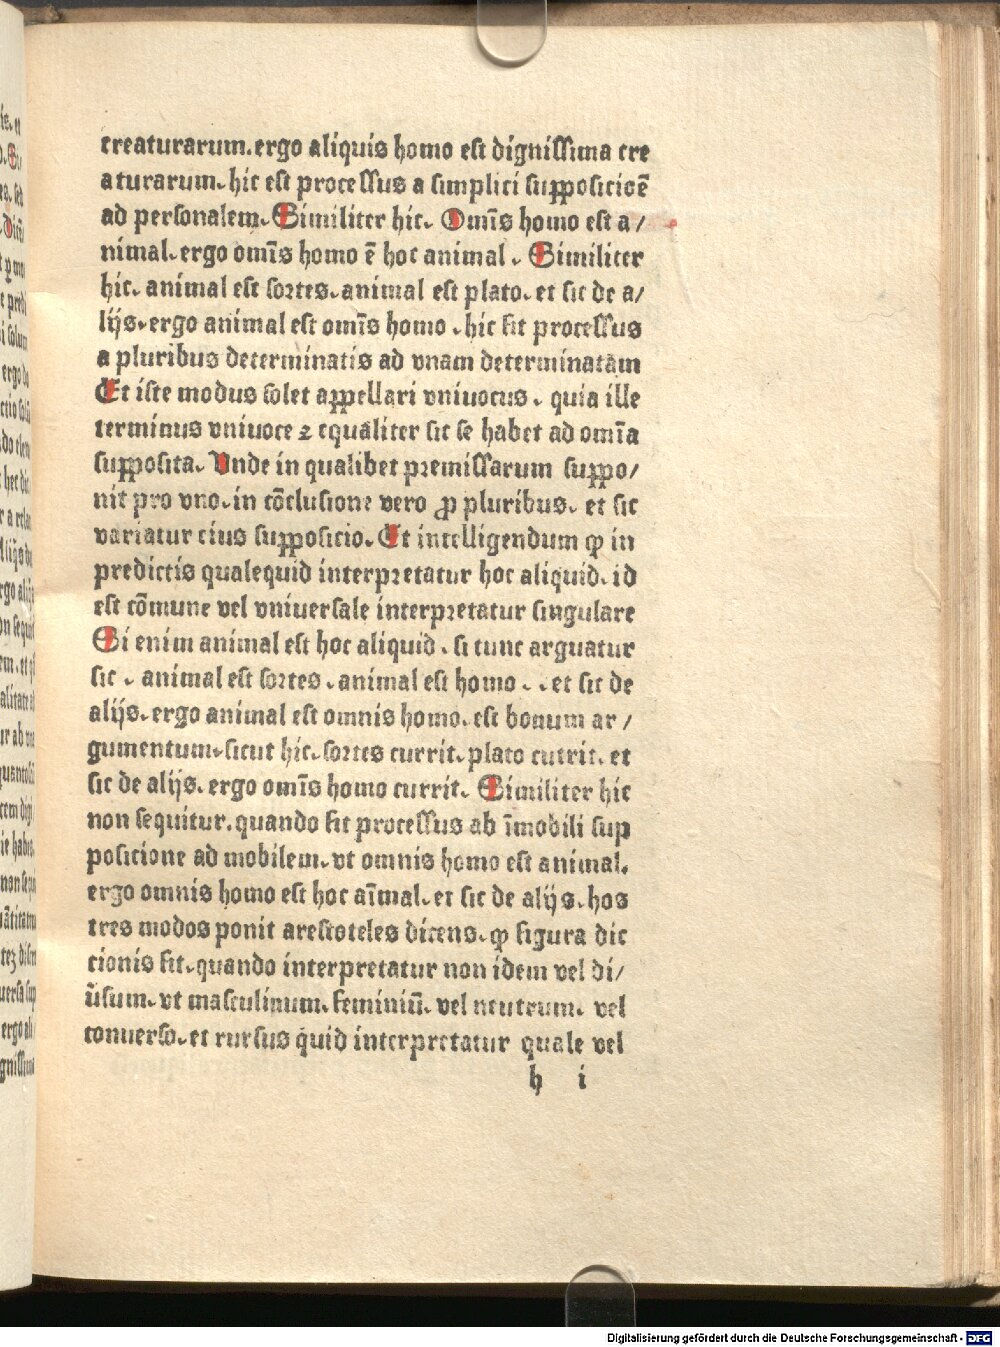 creaturarum. ergo aliquis homo est dignissima cre
aturarum. hic est processus a simplici supposicioē
ad personalem. Similiter hic. Omīs homo est a/
nimal. ergo omīs homo ē hoc animal. Similiter
hic. animal est sortes. animal est plato. et sic de a/
lijs. ergo animal est omīs homo. hic fit processus
a pluribus determinatis ad vnam determinatam
Et iste modus solet appellari vniuocus. quia ille
terminus vniuoce ⁊ equaliter sic se habet ad omīa
supposita. Unde in qualibet premissarum suppo/
nit pro vno. in cōclusione vero ꝓ pluribus. et sic
variatur eius supposicio. Et intelligendum ꝙ in
predictis qualequid interpretatur hoc aliquid. id
est cōmune vel vniuersale interpretatur singulare
Si enim animal est hoc aliquid. si tunc arguatur
sic. animal est sortes. animal est homo.. et sic de
alijs. ergo animal est omnis homo. est bonum ar/
gumentum. sicut hic. sortes currit. plato currit. et
sic de alijs. ergo omīs homo currit. Similiter hic
non sequitur. quando fit processus ab īmobili sup
posicione ad mobilem. vt omnis homo est animal.
ergo omnis homo est hoc aīmal. et sic de alijs. hos
tres modos ponit arestoteles dicens. ꝙ figura dic
cionis fit. quando interpretatur non idem vel di/
ūsum. vt masculinum. feminiū. vel neutrum. vel
conuerso. et rursus quid interpretatur quale vel
h i
Digitalisierung gefördert durch die Deutsche Forschungsgemeinschaft - DFG